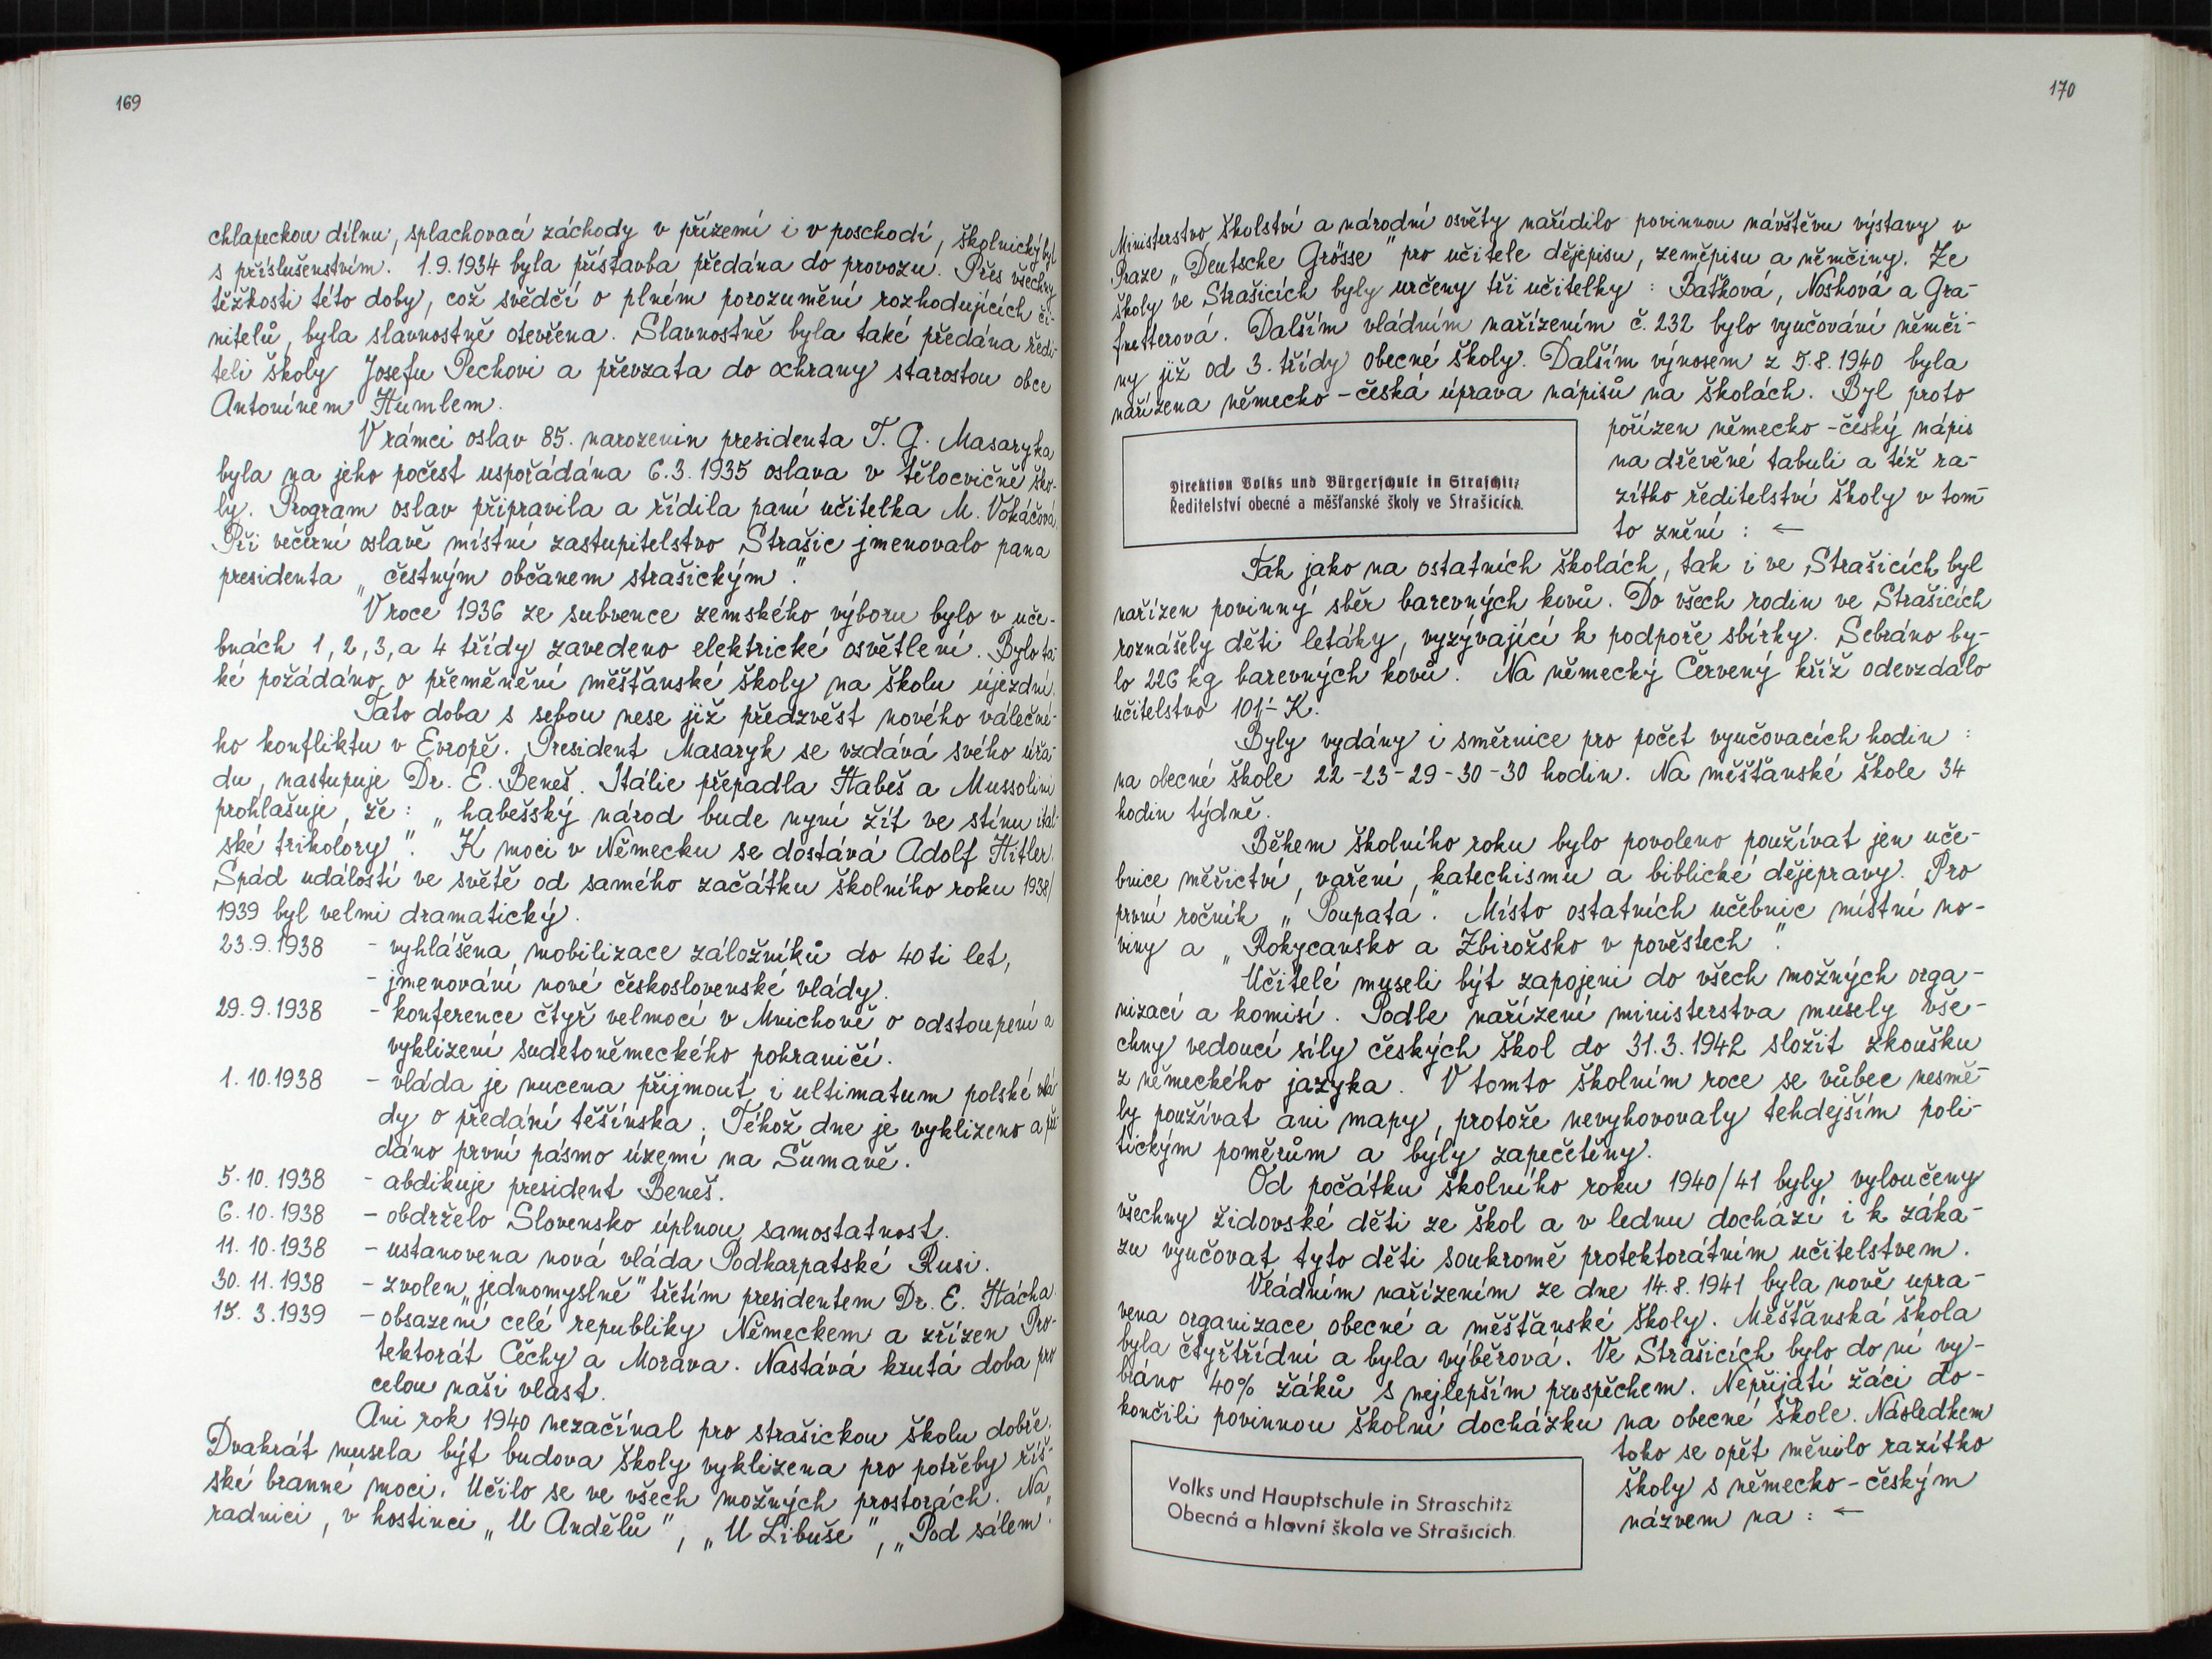 169
chlapeckou dílnu, splachovací záchody v přízemí i v poschodí, školnický byt
s příslušenstvím. 1.9.1934 byla přístavba předána do provozu. Přes všechny
těžkosti této doby, což svědčí o plném porozumění rozhodujících či-
nitelů, byla slavnostně otevřena. Slavnostně byla také předána ředi-
teli školy Josefu Pechovi a převzata do ochrany starostou obce
Antonínem Humlem.
V rámci oslav 85. narozenin presidenta T. G. Masaryka
byla na jeho počest uspořádána 6.3.1935 oslava v tělocvičně ško-
ly. Program oslav připravila a řídila paní učitelka M. Vokáčová.
Při večerní oslavě místní zastupitelstvo Strašic jmenovalo pana
presidenta „čestným občanem strašickým".
V roce 1936 ze subvence zemského výboru bylo v uče-
bnách 1, 2, 3, a 4 třídy zavedeno elektrické osvětlení. Bylo ta-
ké požádáno o přeměnění měšťanské školy na školu újezdní.
Tato doba s sebou nese již předzvěst nového válečné-
ho konfliktu v Evropě. President Masaryk se vzdává svého úřa-
du, nastupuje Dr. E. Beneš. Itálie přepadla Habeš a Mussolini
prohlašuje, že: „habešský národ bude nyní žít ve stínu ital-
ské trikolory". K moci v Německu se dostává Adolf Hitler.
Spád událostí ve světě od samého začátku školního roku 1938/
1939 byl velmi dramatický.
23.9.1938 - vyhlášena mobilizace záložníků do 40ti let,
- jmenování nové československé vlády.
29.9.1938 - konference čtyř velmocí v Mnichově o odstoupení a
vyklizení sudetoněmeckého pohraničí.
1. 10.1938 - vláda je nucena přijmout i ultimatum polské vlá
dy o předání těšínska. Téhož dne je vyklizeno a při-
dáno první pásmo území na Šumavě.
5. 10. 1938 - abdikuje president Beneš.
6. 10. 1938 - obdrželo Slovensko úplnou samostatnost.
11. 10. 1938 - ustanovena nová vláda Podkarpatské Rusi.
30. 11. 1938 - zvolen „jednomyslně" třetím presidentem Dr. E. Hácha.
15. 3. 1939 - obsazení celé republiky Německem a zřízen Pro-
tektorát Čechy a Morava. Nastává krutá doba pro
celou naši vlast.
Ani rok 1940 nezačínal pro strašickou školu dobře.
Dvakrát musela být budova školy vyklizena pro potřeby říš-
ské branné moci. Učilo se ve všech možných prostorách. Na
radnici, v hostinci „U Andělů", „U Libuše", „Pod sálem".
170
Ministerstvo školství a národní osvěty nařídilo povinnou návštěvu výstavy v
Praze „Deutsche Grösse" pro učitele dějepisu, zeměpisu a němčiny. Ze
školy ve Strašicích byly určeny tři učitelky: Baťková, Nosková a Gra-
fnetterová. Dalším vládním nařízením č. 232 bylo vyučování němči-
ny již od 3. třídy obecné školy. Dalším výnosem z 5.8.1940 byla
nařízena německo-česká úprava nápisů na školách. Byl proto
pořízen německo-český nápis
na dřevěné tabuli a též ra-
zítko ředitelství školy v tom-
to znění: ←
Direktion Volks und Bürgerschule in Straschitz
Ředitelství obecné a měšťanské školy ve Strašicích.
Tak jako na ostatních školách, tak i ve Strašicích byl
nařízen povinný sběr barevných kovů. Do všech rodin ve Strašicích
roznášely děti letáky, vyzývající k podpoře sbírky. Sebráno by-
lo 226 kg barevných kovů. Na německý Červený kříž odevzdalo
učitelstvo 101,- K.
Byly vydány i směrnice pro počet vyučovacích hodin:
na obecné škole 22-23-29-30-30 hodin. Na měšťanské škole 34
hodin týdně.
Během školního roku bylo povoleno používat jen uče-
bnice měřictví, vaření, katechismu a biblické dějepravy. Pro
první ročník „Poupata". Místo ostatních učebnic místní no-
viny a „Rokycansko a Zbirožsko v pověstech".
Učitelé museli být zapojeni do všech možných orga-
nizací a komisí. Podle nařízení ministerstva musely vše-
chny vedoucí síly českých škol do 31.3.1942 složit zkoušku
z německého jazyka. V tomto školním roce se vůbec nesmě-
ly používat ani mapy, protože nevyhovovaly tehdejším poli-
tickým poměrům a byly zapečetěny.
Od počátku školního roku 1940/41 byly vyloučeny
všechny židovské děti ze škol a v lednu dochází i k záka-
zu vyučovat tyto děti soukromě protektorátním učitelstvem.
Vládním nařízením ze dne 14.8.1941 byla nově upra-
vena organizace obecné a měšťanské školy. Měšťanská škola
byla čtyřtřídní a byla výběrová. Ve Strašicích bylo do ní vy-
bráno 40% žáků s nejlepším prospěchem. Nepřijatí žáci do-
končili povinnou školní docházku na obecné škole. Následkem
toho se opět měnilo razítko
školy s německo-českým
názvem na: ←
Volks und Hauptschule in Straschitz
Obecná a hlavní škola ve Strašicích.